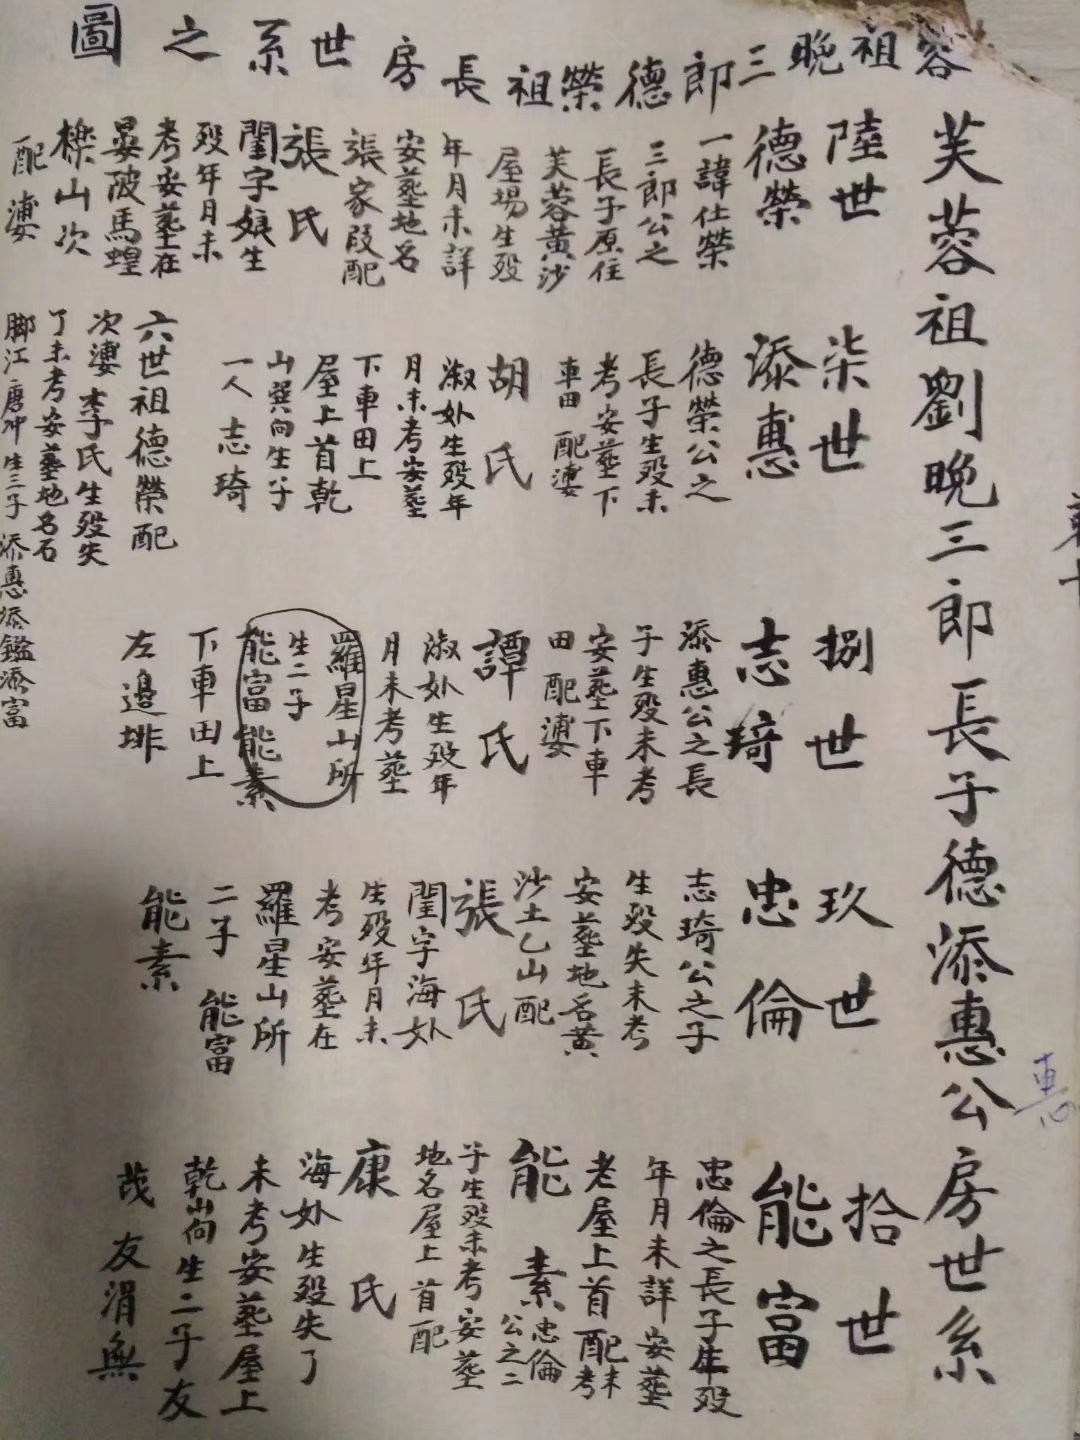 蓉祖晚三郎德榮祖長房世系之圖
芙蓉祖劉晚三郎長子德添惠公房世系
惠
陸世
德榮
一諱仕榮
三郎公之
長子原住
芙蓉黃沙
屋場生歿
年月未詳
安塟地名
張家段配
張氏
閨字娘生
歿年月未
考妥塟在
晏陂馬蝗
櫟山次
配 婆
柒世
添惠
德榮公之
長子生歿未
考安塟下
車田 配婆
胡氏
淑妣生歿年
月未考安塟
下車田上
屋上首乾
山巽向生子
一人 志琦
六世祖德榮配
次婆李氏生歿失
了未考安塟地名石
脚江唐冲生三子添惠添鑑添富
捌世
志琦
添惠公之長
子生歿未考
安塟下車
田 配婆
譚氏
淑妣生歿年
月未考塟
羅星山所
生二子
能富能素
下車田上
左邉排
玖世
忠倫
志琦公之子
生歿失未考
安塟地名黃
沙土乙山配
張氏
閨字海妣
生歿年月未
考安塟在
羅星山所
二子 能富
能素
拾世
能富
忠倫之長子生歿
年月未詳安塟
老屋上首配未考
能素忠倫公之二
子生歿未考安塟
地名屋上首配
康氏
海妣生歿失了
未考安塟屋上
乾山向生二子友
茂 友涓無